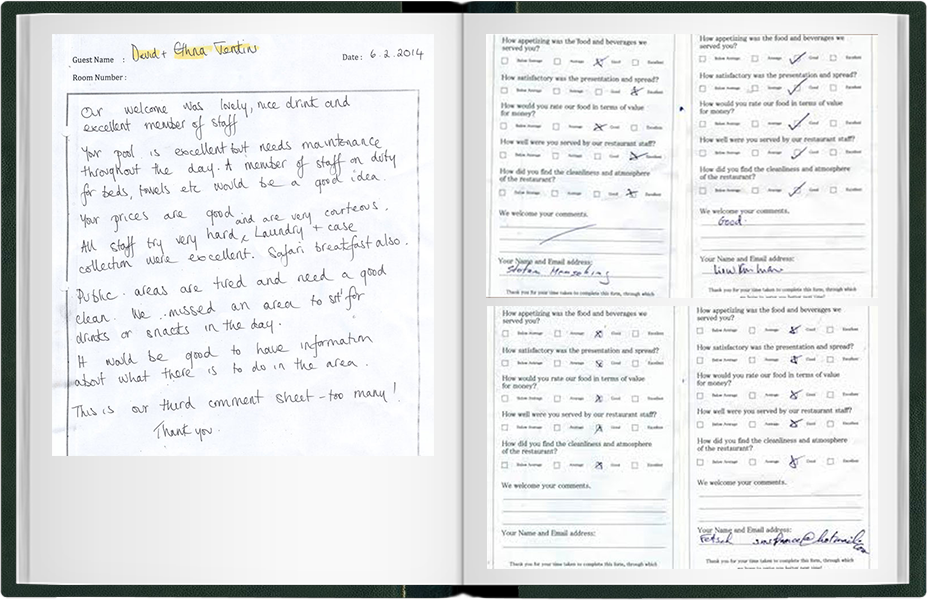 Guest Name : David + Ethna
Date : 6.2.2014
Room Number :
Our welcome was lovely, nice drink and
excellent member of staff
Your pool is excellent but needs maintenance
throughout the day. A member of staff on duty
for beds, towels etc would be a good idea.
Your prices are good
All staff try very hard and are very courteous. Laundry + case
collection were excellent. Safari breakfast also.
Public areas are tired and need a good
clean. We missed an area to sit for
drinks or snacks in the day.
It would be good to have information
about what there is to do in the area.
This is our third comment sheet - too many!
Thank you.
How appetizing was the food and beverages we
served you?
Below Average Average Good Excellent
How satisfactory was the presentation and spread?
Below Average Average Good Excellent
How would you rate our food in terms of value
for money?
Below Average Average Good Excellent
How well were you served by our restaurant staff?
Below Average Average Good Excellent
How did you find the cleanliness and atmosphere
of the restaurant?
Below Average Average Good Excellent
We welcome your comments.
Your Name and Email address:
Thank you for your time taken to complete this form, through which
How appetizing was the food and beverages we
served you?
Below Average Average Good Excellent
How satisfactory was the presentation and spread?
Below Average Average Good Excellent
How would you rate our food in terms of value
for money?
Below Average Average Good Excellent
How well were you served by our restaurant staff?
Below Average Average Good Excellent
How did you find the cleanliness and atmosphere
of the restaurant?
Below Average Average Good Excellent
We welcome your comments.
Good.
Your Name and Email address:
Thank you for your time taken to complete this form, through which
How appetizing was the food and beverages we
served you?
Below Average Average Good Excellent
How satisfactory was the presentation and spread?
Below Average Average Good Excellent
How would you rate our food in terms of value
for money?
Below Average Average Good Excellent
How well were you served by our restaurant staff?
Below Average Average Good Excellent
How did you find the cleanliness and atmosphere
of the restaurant?
Below Average Average Good Excellent
We welcome your comments.
Your Name and Email address:
Thank you for your time taken to complete this form, through which
How appetizing was the food and beverages we
served you?
Below Average Average Good Excellent
How satisfactory was the presentation and spread?
Below Average Average Good Excellent
How would you rate our food in terms of value
for money?
Below Average Average Good Excellent
How well were you served by our restaurant staff?
Below Average Average Good Excellent
How did you find the cleanliness and atmosphere
of the restaurant?
Below Average Average Good Excellent
We welcome your comments.
Your Name and Email address:
Thank you for your time taken to complete this form, through which